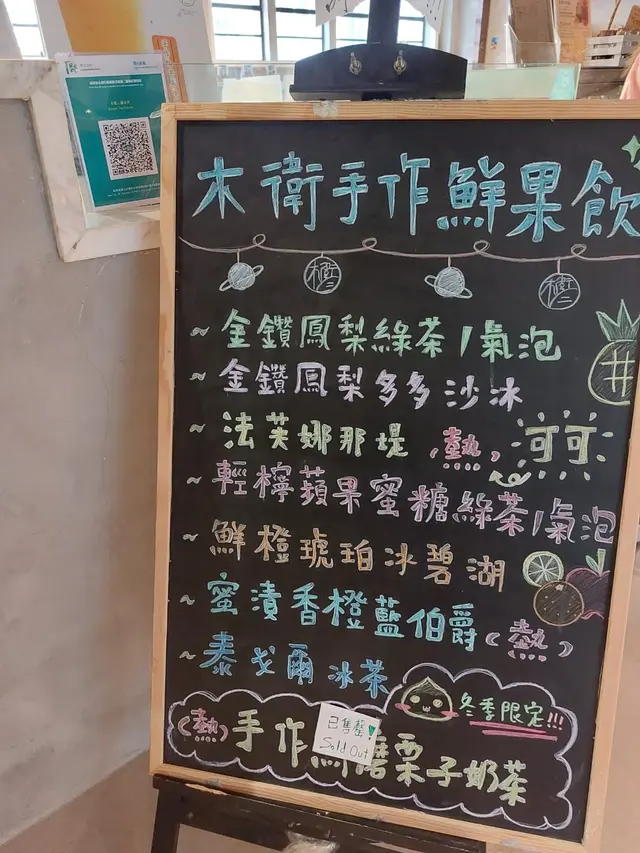 木衛手作鮮果飲
木衛二
木衛二
~ 金鑽鳳梨綠茶/氣泡
~ 金鑽鳳梨多多沙冰
~ 法芙娜那堤(熱) 可可
~ 輕檸蘋果蜜糖綠茶/氣泡
~ 鮮橙琥珀冰碧湖
~ 蜜漬香橙藍伯爵(熱)
~ 泰戈爾冰茶
冬季限定!!!
(熱)手作
磨栗子奶茶
已售罄!
Sold Out